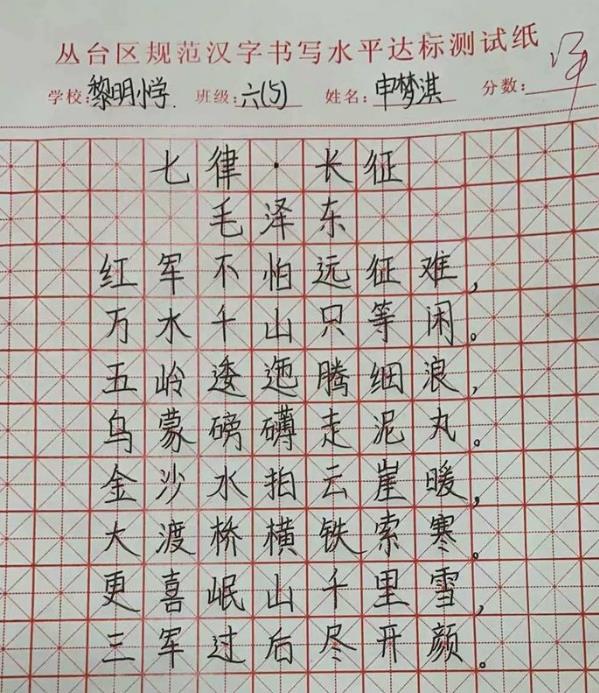 丛台区规范汉字书写水平达标测试纸
学校:黎明小学 班级:六(5) 姓名:申梦淇 分数:
七律·长征
毛泽东
红军不怕远征难,
万水千山只等闲。
五岭逶迤腾细浪,
乌蒙磅礴走泥丸。
金沙水拍云崖暖,
大渡桥横铁索寒。
更喜岷山千里雪,
三军过后尽开颜。